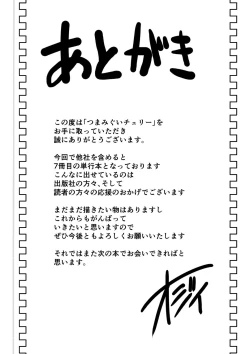 あとがき
この度は「つまみぐいチェリー」を
お手に取っていただき
誠にありがとうございます。
今回で他社を含めると
7冊目の単行本となっております
こんなに出せているのは
出版社の方々、そして
読者の方々の応援のおかげでございます
まだまだ描きたい物はありますし
これからもがんばって
いきたいと思いますので
ぜひ今後ともよろしくお願いいたします
それではまた次の本でお会いできればと
思います。
オジィ